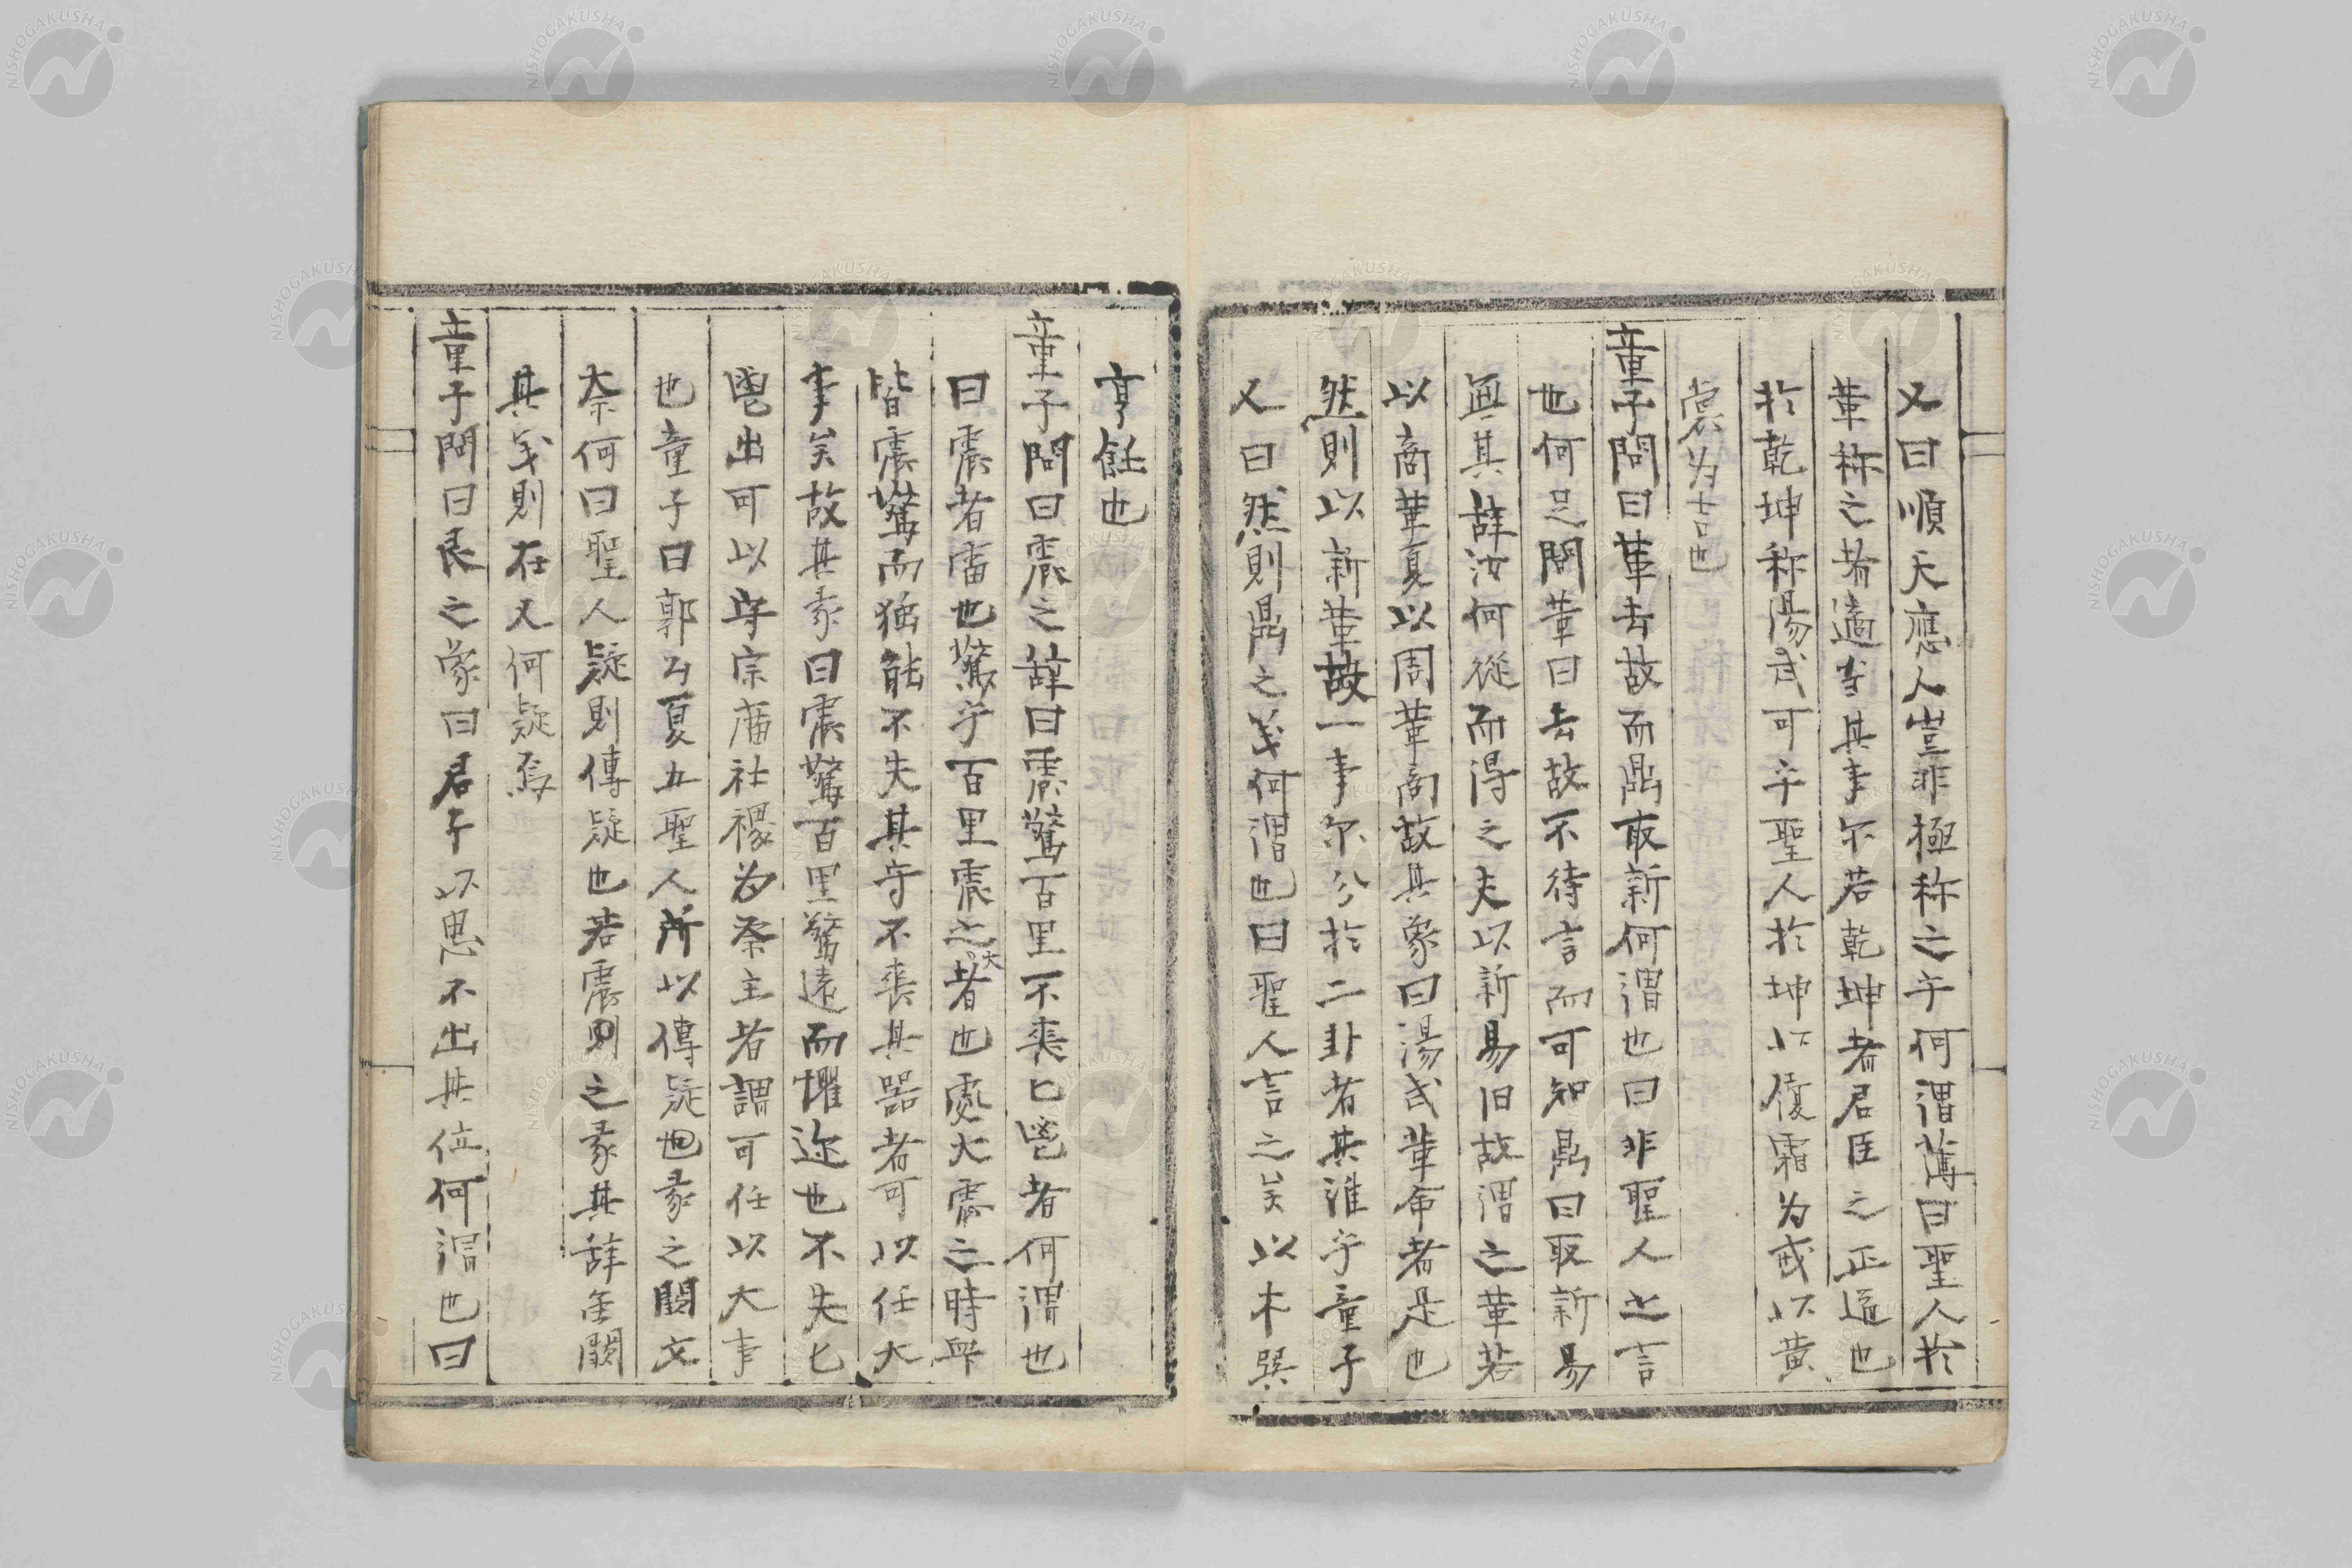 又曰順天應人豈非極称之乎何謂薄曰聖人於
革称之者適当其事尓若乾坤者君臣之正道也
於乾坤称湯武可乎聖人於坤以履霜为戒以黄
裳为吉也
童子問曰革去故而鼎取新何謂也曰非聖人之言
也何足問革曰去故不待言而可知鼎曰取新易
無其辞汝何從而得之夫以新易旧故謂之革若
以商革夏以周革商故其象曰湯武革命者是也
然則以新革故一事尔分於二卦者其誰乎童子
又曰然則鼎之义何謂也曰聖人言之矣以木巽
亨飪也
童子問曰震之辞曰震驚百里不丧匕鬯者何謂也
曰震者雷也驚乎百里震之大者也處大震之時眾
皆震驚而独能不失其守不丧其器者可以任大
事矣故其彖曰震驚百里驚遠而懼迩也不失匕
鬯出可以守宗庙社稷为祭主者謂可任以大事
也童子曰郭公夏五聖人所以傳疑也彖之闕文
奈何曰聖人疑則傳疑也若震則之彖其辞虽闕
其义則在又何疑焉
童子問曰艮之象曰君子以思不出其位何謂也曰